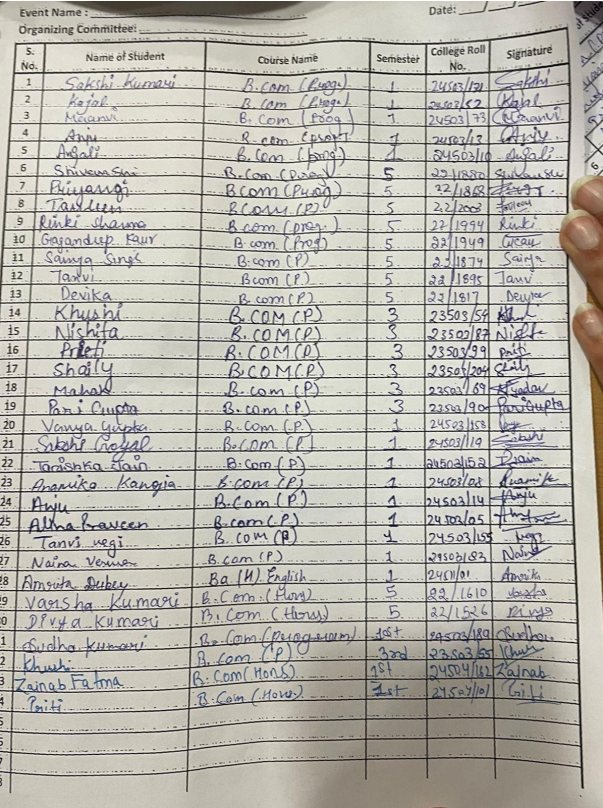 Event Name : Date: / /
Organizing Committee:
S. No. Name of Student Course Name Semester College Roll No. Signature
1 Sakshi Kumari B.Com (Prog) 1 24503/121 Sakshi
2 Kajal B.Com (Prog) 1 24503/52 Kajal
3 B.Com (Prog) 1 24503/73
4 Anju B.com (prog) 1 24503/13
5 Anjali B.Com (prog) 1 24503/10 Anjali
6 B.Com (Prog) 5 22/1880
7 Priyangi BCom (Prog) 5 22/1868
8 BCom (P) 5 22/2003
9 Rinki Sharma B com. (prog.) 5 22/1994 Rinki
10 Gagandeep Kaur B.com (Prog) 5 22/1949
11 Sainya Singh B.com (P) 5 22/1874 Sainya
12 Tanvi Bcom (P) 5 22/1895 Tanvi
13 Devika B.com (P) 5 22/1817
14 Khushi B.COM (P) 3 23503/54
15 Nishita B.COM (P) 3 23503/87
16 Preeti B.COM (P) 3 23503/99 Priti
17 Shaily B.COM (P) 3 23503/204 Shaily
18 Mahak B.com (P) 3 23503/69
19 Pari Gupta B.com (P) 3 23503/90 Pari Gupta
20 Vanya Gupta B.com (P) 1 24503/158
21 Sakshi Goyal B.Com (P) 1 24503/119 Sakshi
22 Tanishka Jain B.Com (P) 1 24503/152
23 Anamika Kangia B.com (P) 1 24503/08 Anamika
24 Anju B.Com (P) 1 24503/14 Anju
25 Alina Praveen B.com (P) 1 24503/05
26 Tanvi negi B.com (P) 1 24503/155 negi
27 Naina Verma B.com (P) 1 24503/83 Naina
28 Amrita Dubey Ba (H) English 1 2451/01 Amrita
9 Varsha Kumari B.Com (Hons) 5 22/1610 Varsha
0 Divya Kumari B.Com (Hons) 5 22/1526 Divya
1 Sudha Kumari B.Com (program) 1st 24503/189 Sudha
2 Khushi B.Com (P) 3rd 23503/55 Khushi
3 Zainab Fatma B.Com (Hons) 1st 24504/162 Zainab
4 Priti B.Com (Hons) 1st 24504/101
5
6
7
8